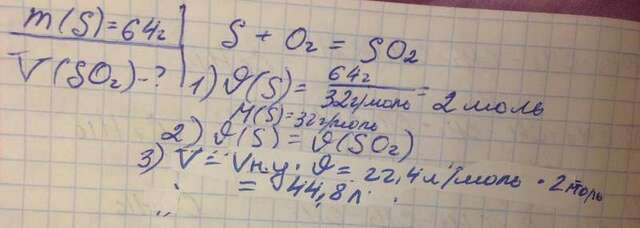 m(S)=64г
S + O₂ = SO₂
V(SO₂)-?
1) ϑ(S) = 64г / 32г/моль = 2 моль
M(S)=32г/моль
2) ϑ(S) = ϑ(SO₂)
3) V = Vн.у. · ϑ = 22,4л/моль · 2моль
= 44,8л.